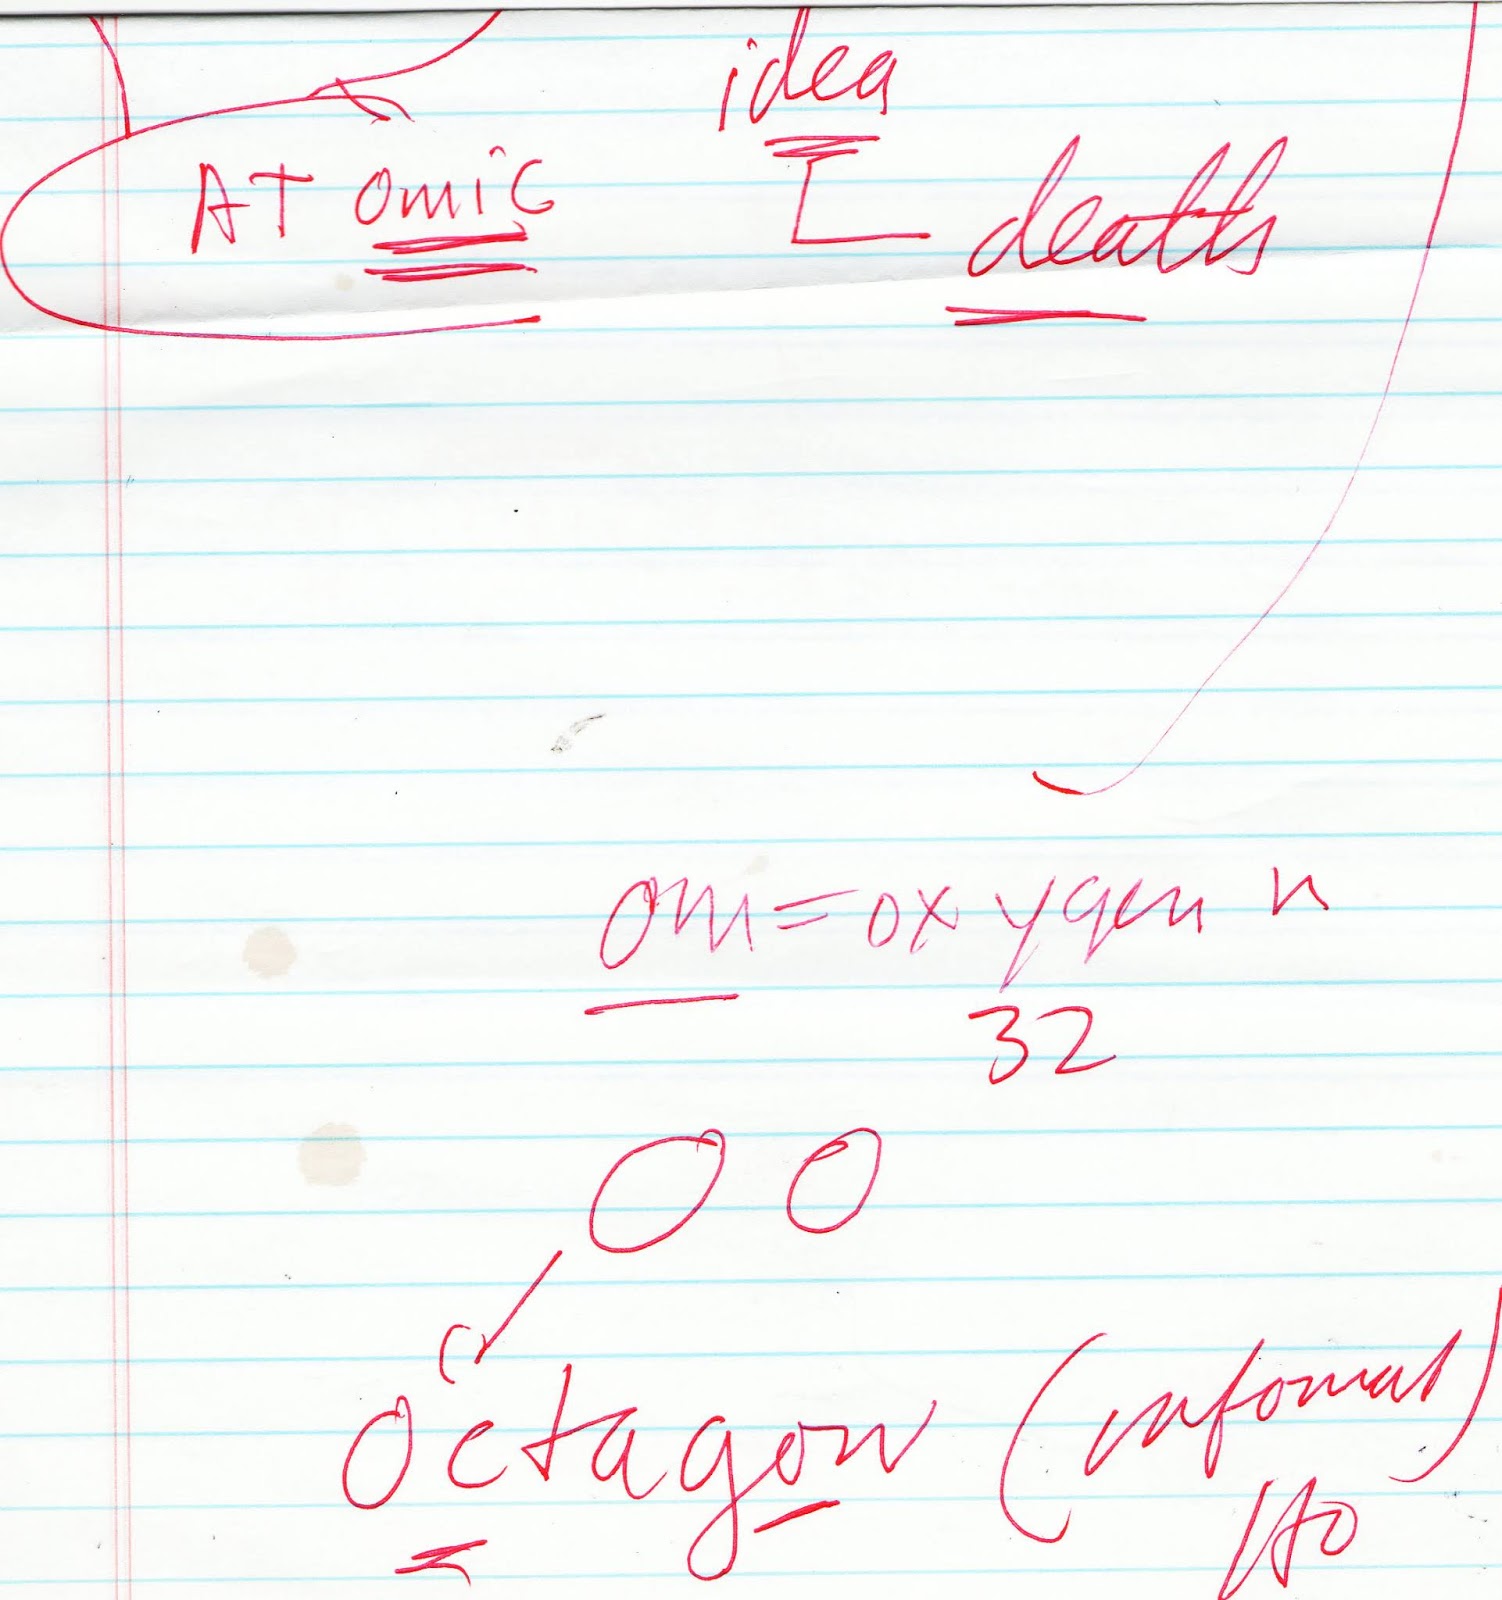 idea
ATomic
death
om=oxygen n
32
O O
Octagon (infomat)